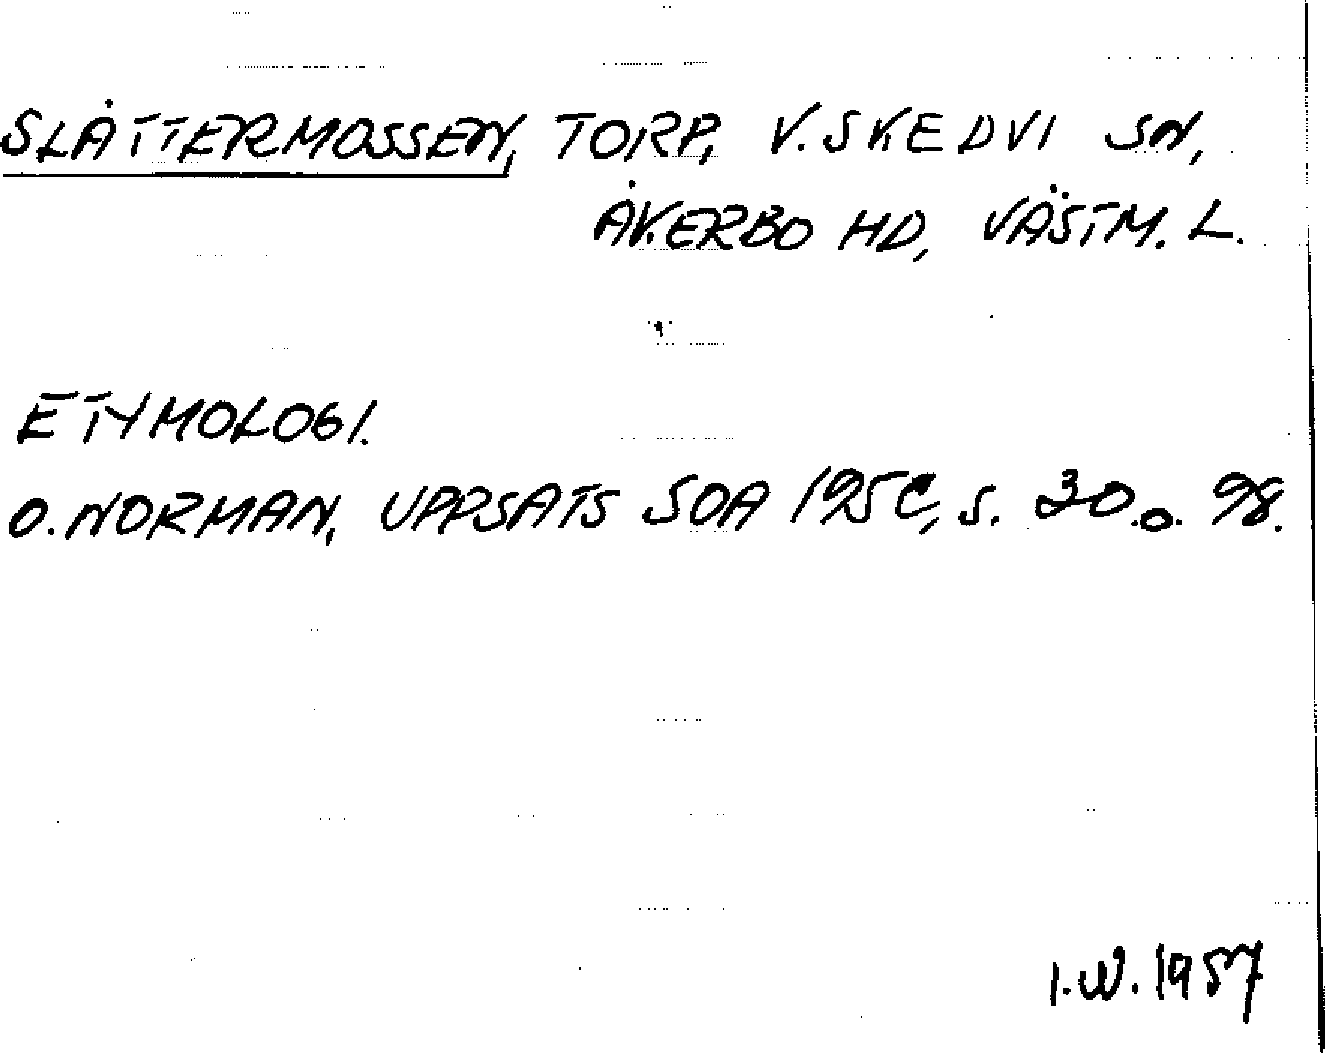 SLÅTTERMOSSEN, TORP, V. SKEDVI SN,
ÅKERBO HD, VÄSTM. L.
ETYMOLOGI.
O. NORMAN, UPPSATS SOA 195C, S. 30 o. 98.
I.W. 1957